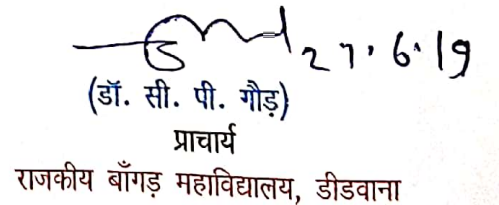 27.6.19
(डॉ. सी. पी. गौड़)
प्राचार्य
राजकीय बाँगड़ महाविद्यालय, डीडवाना